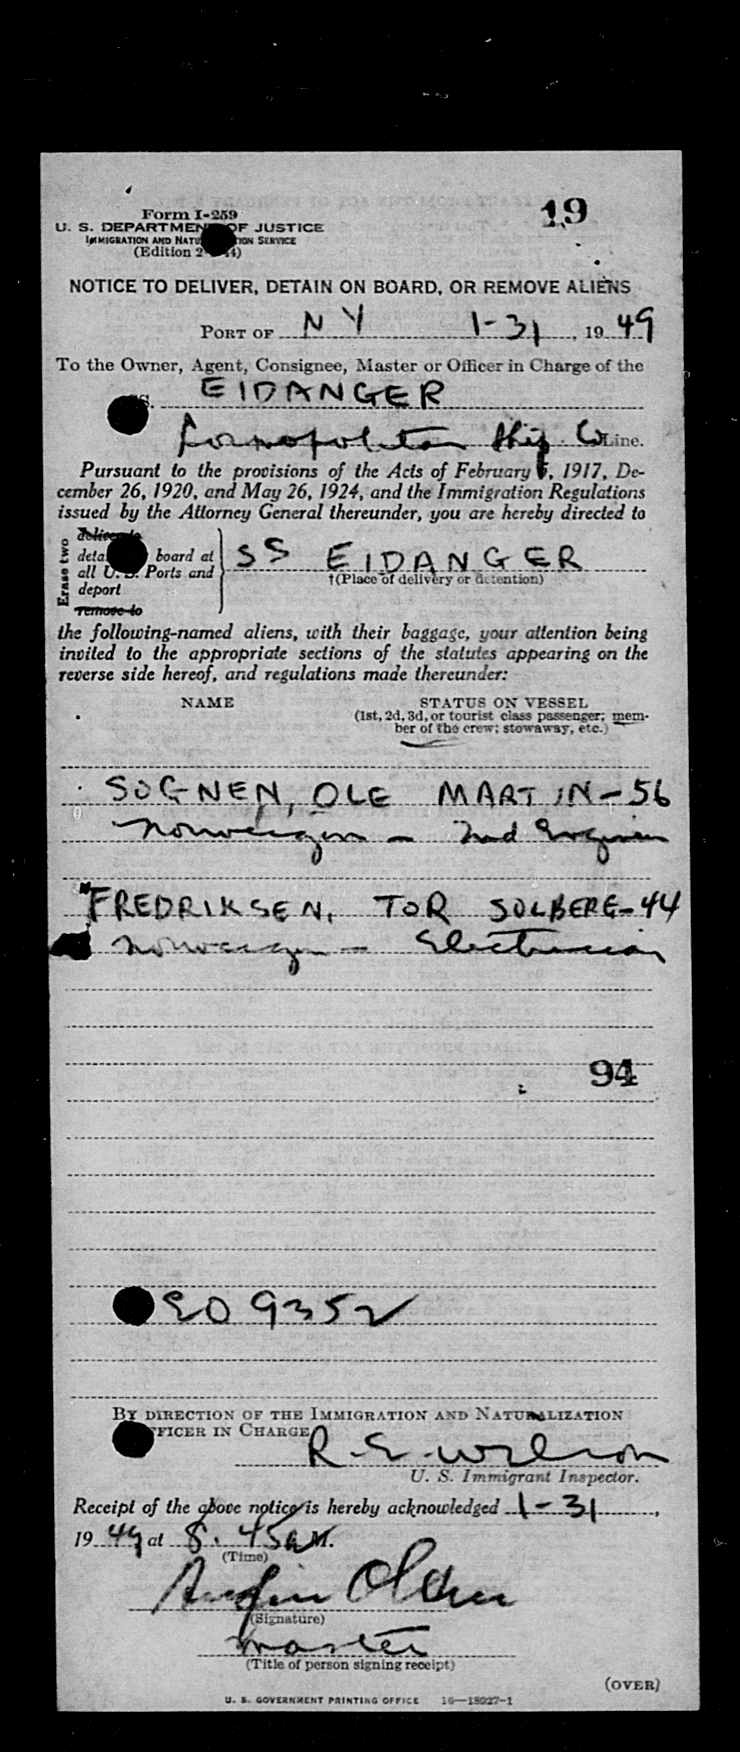 Form I-259
19
U. S. DEPARTMENT OF JUSTICE
IMMIGRATION AND NATU TION SERVICE
(Edition 2- 44)
NOTICE TO DELIVER, DETAIN ON BOARD, OR REMOVE ALIENS
PORT OF NY 1-31, 1949
To the Owner, Agent, Consignee, Master or Officer in Charge of the
SS. EIDANGER
Cosmopolitan Ship Co Line.
Pursuant to the provisions of the Acts of February 5, 1917, De-
cember 26, 1920, and May 26, 1924, and the Immigration Regulations
issued by the Attorney General thereunder, you are hereby directed to
Erase two
deliver to
deta board at
all U. S. Ports and
deport
remove to
SS EIDANGER
†(Place of delivery or detention)
the following-named aliens, with their baggage, your attention being
invited to the appropriate sections of the statutes appearing on the
reverse side hereof, and regulations made thereunder:
NAME STATUS ON VESSEL
(1st, 2d, 3d, or tourist class passenger; mem-
ber of the crew; stowaway, etc.)
SOGNEN, OLE MARTIN-56
Norwegian - 2nd Engineer
FREDRIKSEN, TOR SOLBERG-44
Norwegian - Electrician
94
EO 9352
BY DIRECTION OF THE IMMIGRATION AND NATURALIZATION
OFFICER IN CHARGE
R. E. Wilson
U. S. Immigrant Inspector.
Receipt of the above notice is hereby acknowledged 1-31,
1949 at 8.45 a M.
(Time)
Olsen
(Signature)
master
(Title of person signing receipt)
(OVER)
U. S. GOVERNMENT PRINTING OFFICE 16-18027-1